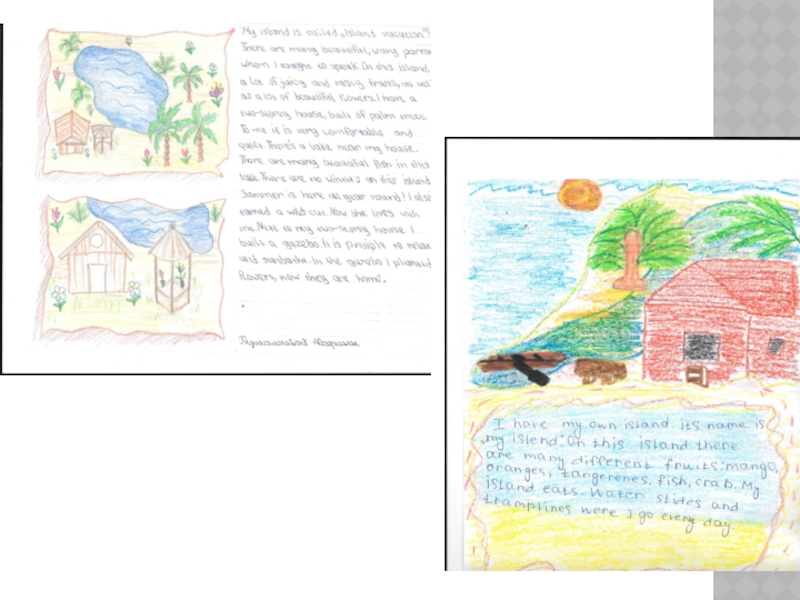 My island is called „Island vacation"!
There are many beautiful, wing parrot
whom I taught to speak. On this island,
a lot of juicy and tasty fruits, as wel
as a lot of beautiful flowers. I have a
two-storey house, built of palm trees.
To me it is very comfortable and
quiet. There's a lake near my house.
There are many beautiful fish in this
lake. There are no winds on this island
Summer is here all year round! I also
tamed a wild cat. Now she lives with
me. Next to my two-storey house I
built a gazebo. It is possible to relax
and sunbathe. In the gazebo I planted
flowers, now they are home.
I have my own island. its name is
„my islend". On this island there
are many different fruits: mango,
oranges, tangerenes. fish, crab. My
island eats. Water slides and
tramplines were I go every day.